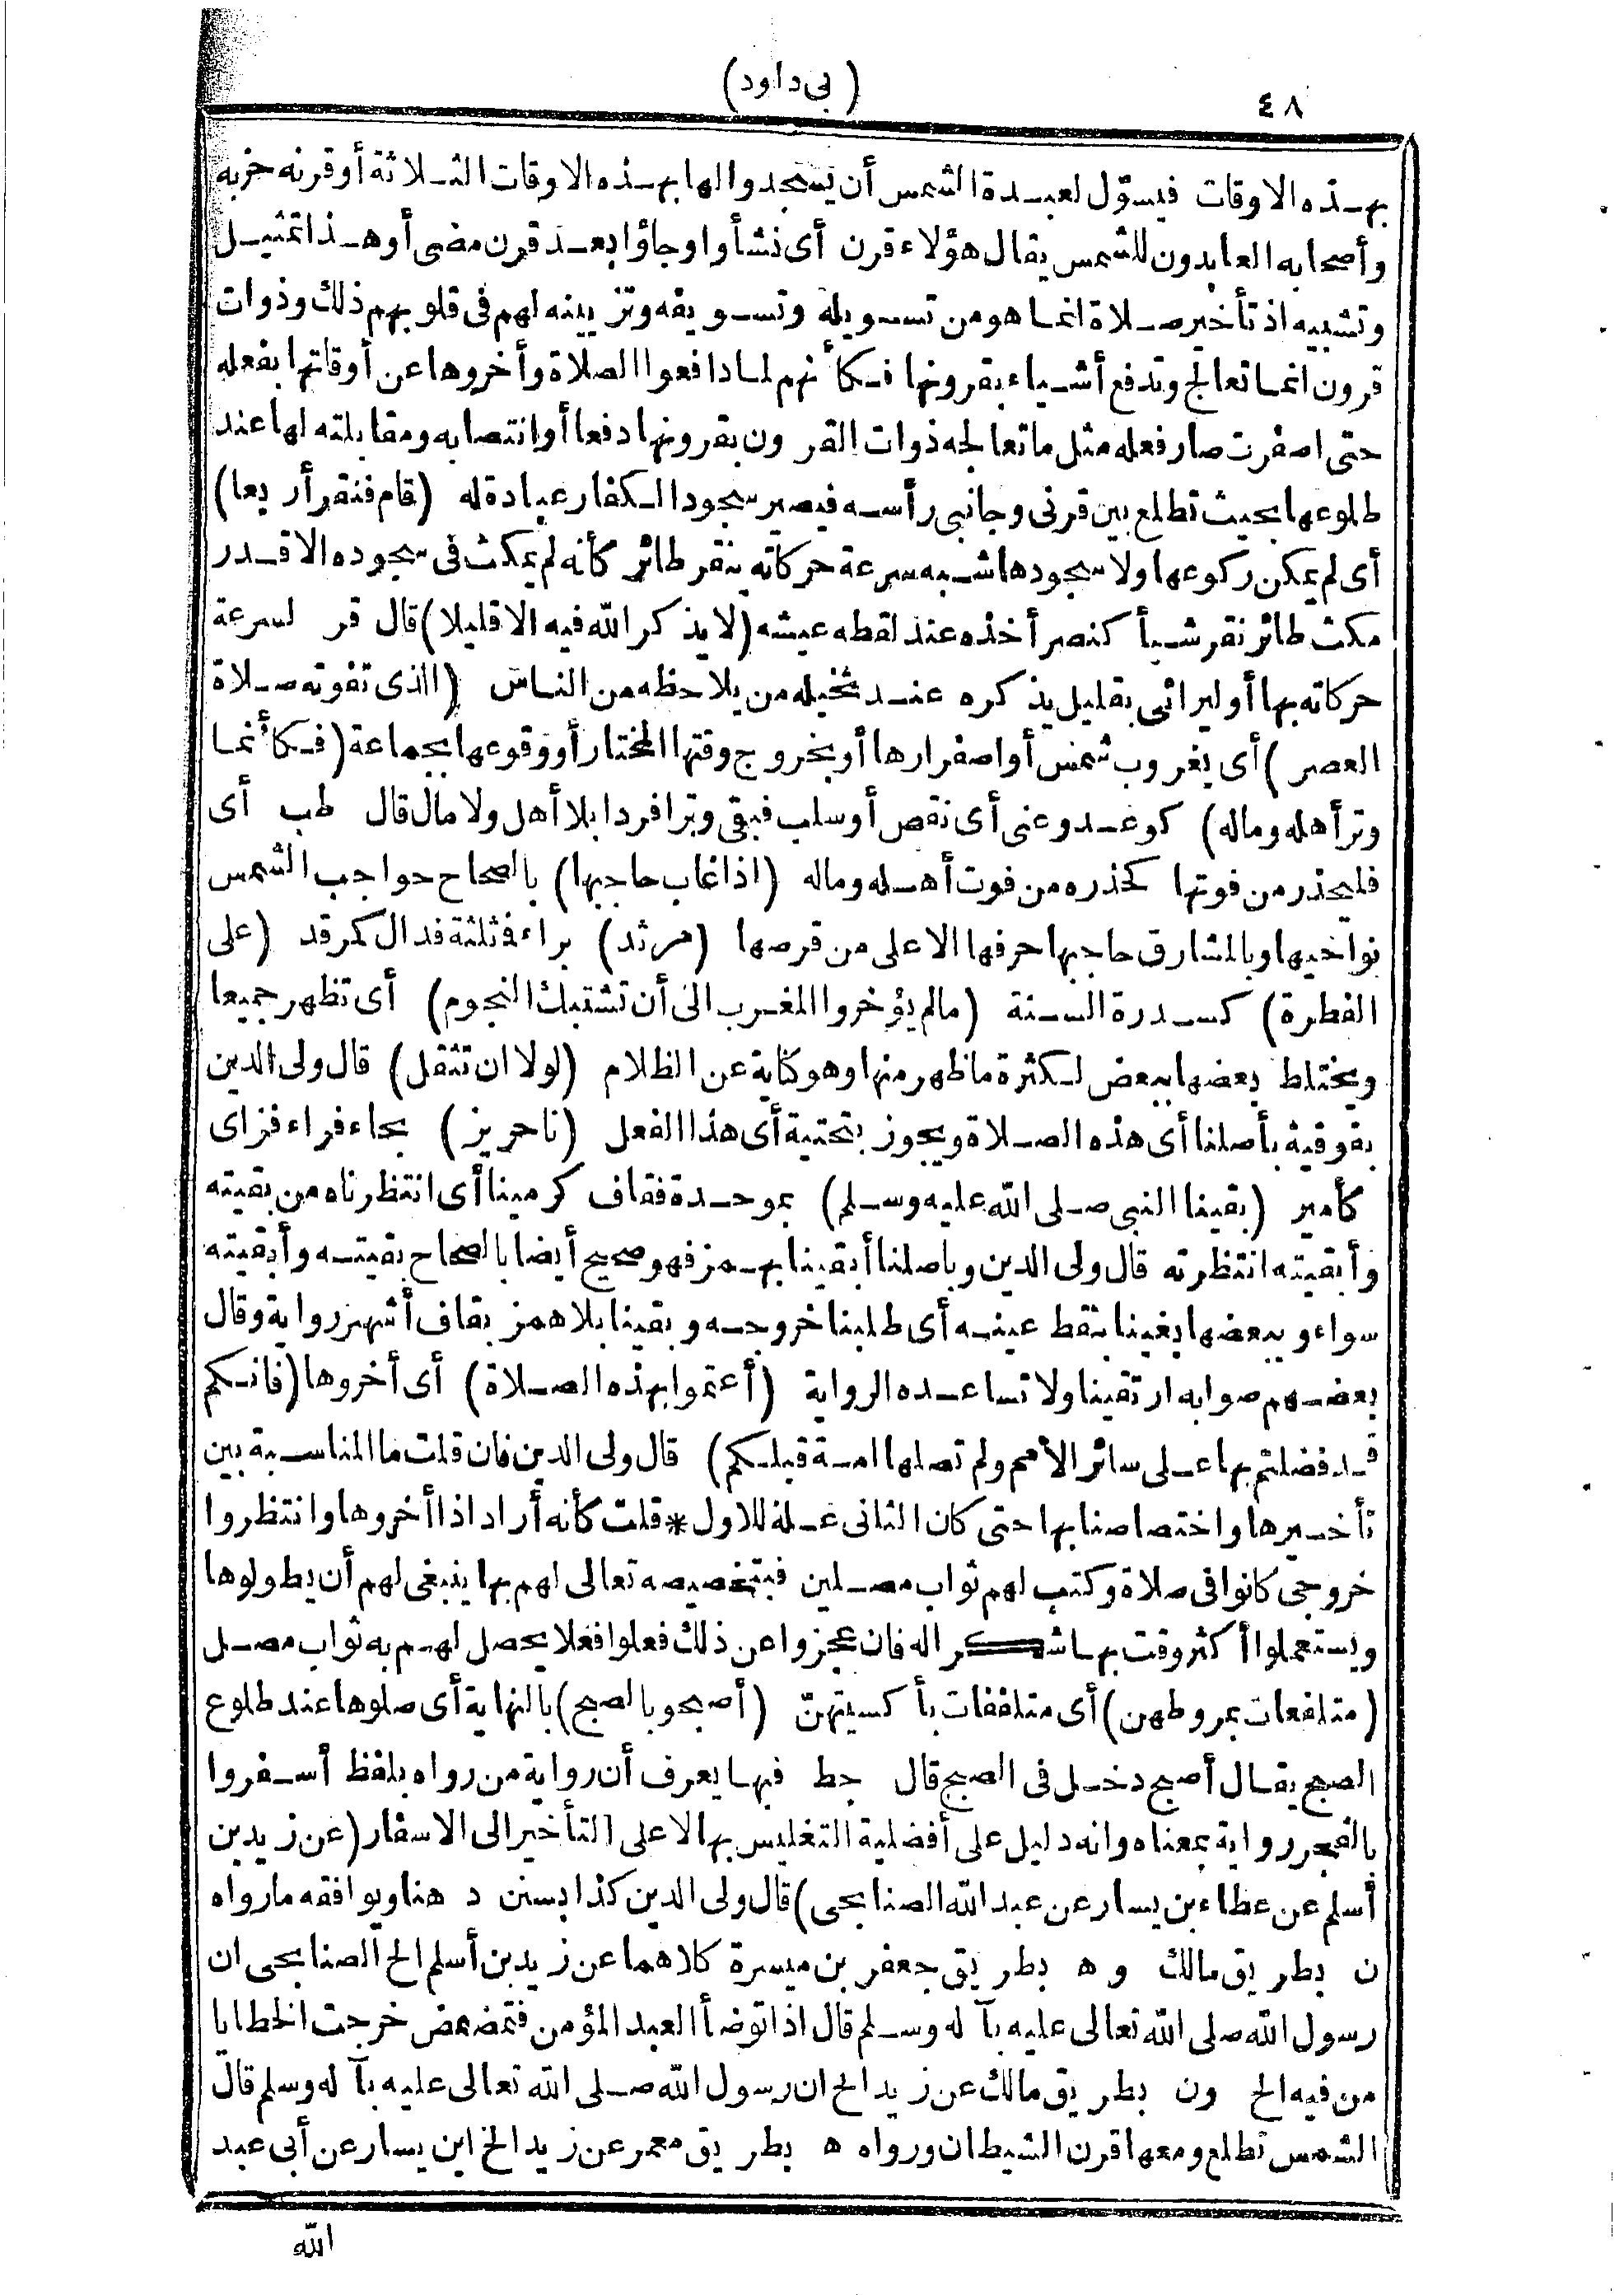 ٤٨
(بى داود)
بهذه الاوقات فيسوّل لعبدة الشمس أن يسجدوا لها بهذه الاوقات الثلاثة أو قرنه حزبه
وأصحابه العابدون للشمس يقال هؤلاء قرن أى نشأوا وجاؤا بعد قرن مضى أو هذا تمثيل
وتشبيه اذ تأخير صلاة انما هو من تسويله وتسويقه وتزيينه لهم فى قلوبهم ذلك وذوات
قرون انما تعالج وتدفع أشياء بقرونها فكأنهم لما دافعوا الصلاة وأخروها عن أوقاتها بفعله
حتى اصفرت صار فعله مثل ما تعالجه ذوات القرون بقرونها دفعا أو انتصابه ومقابلته لها عند
طلوعها بحيث تطلع بين قرنى وجانبى رأسه فيصير سجود الكفار عبادة له (قام فنقر أربعا)
أى لم يمكن ركوعها ولا سجودها شبه سرعة حركاته بنقر طائر كأنه لم يمكث فى سجوده الا قدر
مكث طائر نقر شيأ كنصر أخذه عند لقطه عيشه (لا يذكر الله فيه الا قليلا) قال قر لسرعة
حركاته بها أو ليرائى بقليل يذكره عند تخيله من يلاحظه من الناس (الذى تفوته صلاة
العصر) أى بغروب شمس أو اصفرارها أو بخروج وقتها المختار أو وقوعها بجماعة (فكأنما
وتر أهله وماله) كوعد وعنى أى نقص أو سلب فبقى وترا فردا بلا أهل ولا مال قال طب أى
فليحذر من فوتها كحذره من فوت أهله وماله (اذا غاب حاجبها) بالصحاح حواجب الشمس
نواحيها وبالمشارق حاجبها حرفها الاعلى من قرصها (مرثد) براء فثلثة فدال كمرقد (على
الفطرة) كسدرة السنة (مالم يؤخروا المغرب الى أن تشتبك النجوم) أى تظهر جميعا
ويختلط بعضها ببعض لكثرة ما ظهر منها وهو كناية عن الظلام (لولا ان تثقل) قال ولى الدين
بفوقية بأصلنا أى هذه الصلاة ويجوز بتحتية أى هذا الفعل (نا حريز) بحاء فراء فزاى
كأمير (بقينا النبى صلى الله عليه وسلم) بموحدة فقاف كرمينا أى انتظرناه من بقيته
وأبقيته انتظرته قال ولى الدين وباصلنا أبقينا بهمز فهو صحيح أيضا بالصحاح بقيته وأبقيته
سواء وببعضها بغينا بنقط عينه أى طلبنا خروجه وبقينا بلا همز بقاف أشهر رواية وقال
بعضهم صوابه ارتقينا ولا تساعده الرواية (أعتموا بهذه الصلاة) أى أخروها (فانكم
قد فضلتم بها على سائر الأمم ولم تصلها امة قبلكم) قال ولى الدين فان قلت ما المناسبة بين
تأخيرها واختصاصنا بها حتى كان الثانى علة للاول * قلت كأنه أراد اذا أخروها وانتظروا
خروجى كانوا فى صلاة وكتب لهم ثواب مصلين فبتخصيصه تعالى لهم بها ينبغى لهم أن يطولوها
ويستعملوا أكثر وقت بها شكرا له فان عجزوا عن ذلك فعلوا فعلا يحصل لهم به ثواب مصل
(متلفعات بمروطهن) أى متلففات بأكسيتهنّ (أصبحو بالصبح) بالنهاية أى صلوها عند طلوع
الصبح يقال أصبح دخل فى الصبح قال حط فبها يعرف أن رواية من رواه بلفظ أسفروا
بالفجر رواية بمعناه وانه دليل على أفضلية التغليس بها لا على التأخير الى الاسفار (عن زيد بن
أسلم عن عطاء بن يسار عن عبد الله الصنابحى) قال ولى الدين كذا بسنن د هنا ويوافقه ما رواه
ن بطريق مالك و ه بطريق جعفر بن ميسرة كلاهما عن زيد بن أسلم الخ الصنابحى ان
رسول الله صلى الله تعالى عليه بآله وسلم قال اذا توضأ العبد المؤمن فتمضمض خرجت الخطايا
من فيه الخ ون بطريق مالك عن زيد الخ ان رسول الله صلى الله تعالى عليه بآله وسلم قال
الشمس تطلع ومعها قرن الشيطان ورواه ه بطريق معمر عن زيد الخ ابن يسار عن أبى عبد
الله